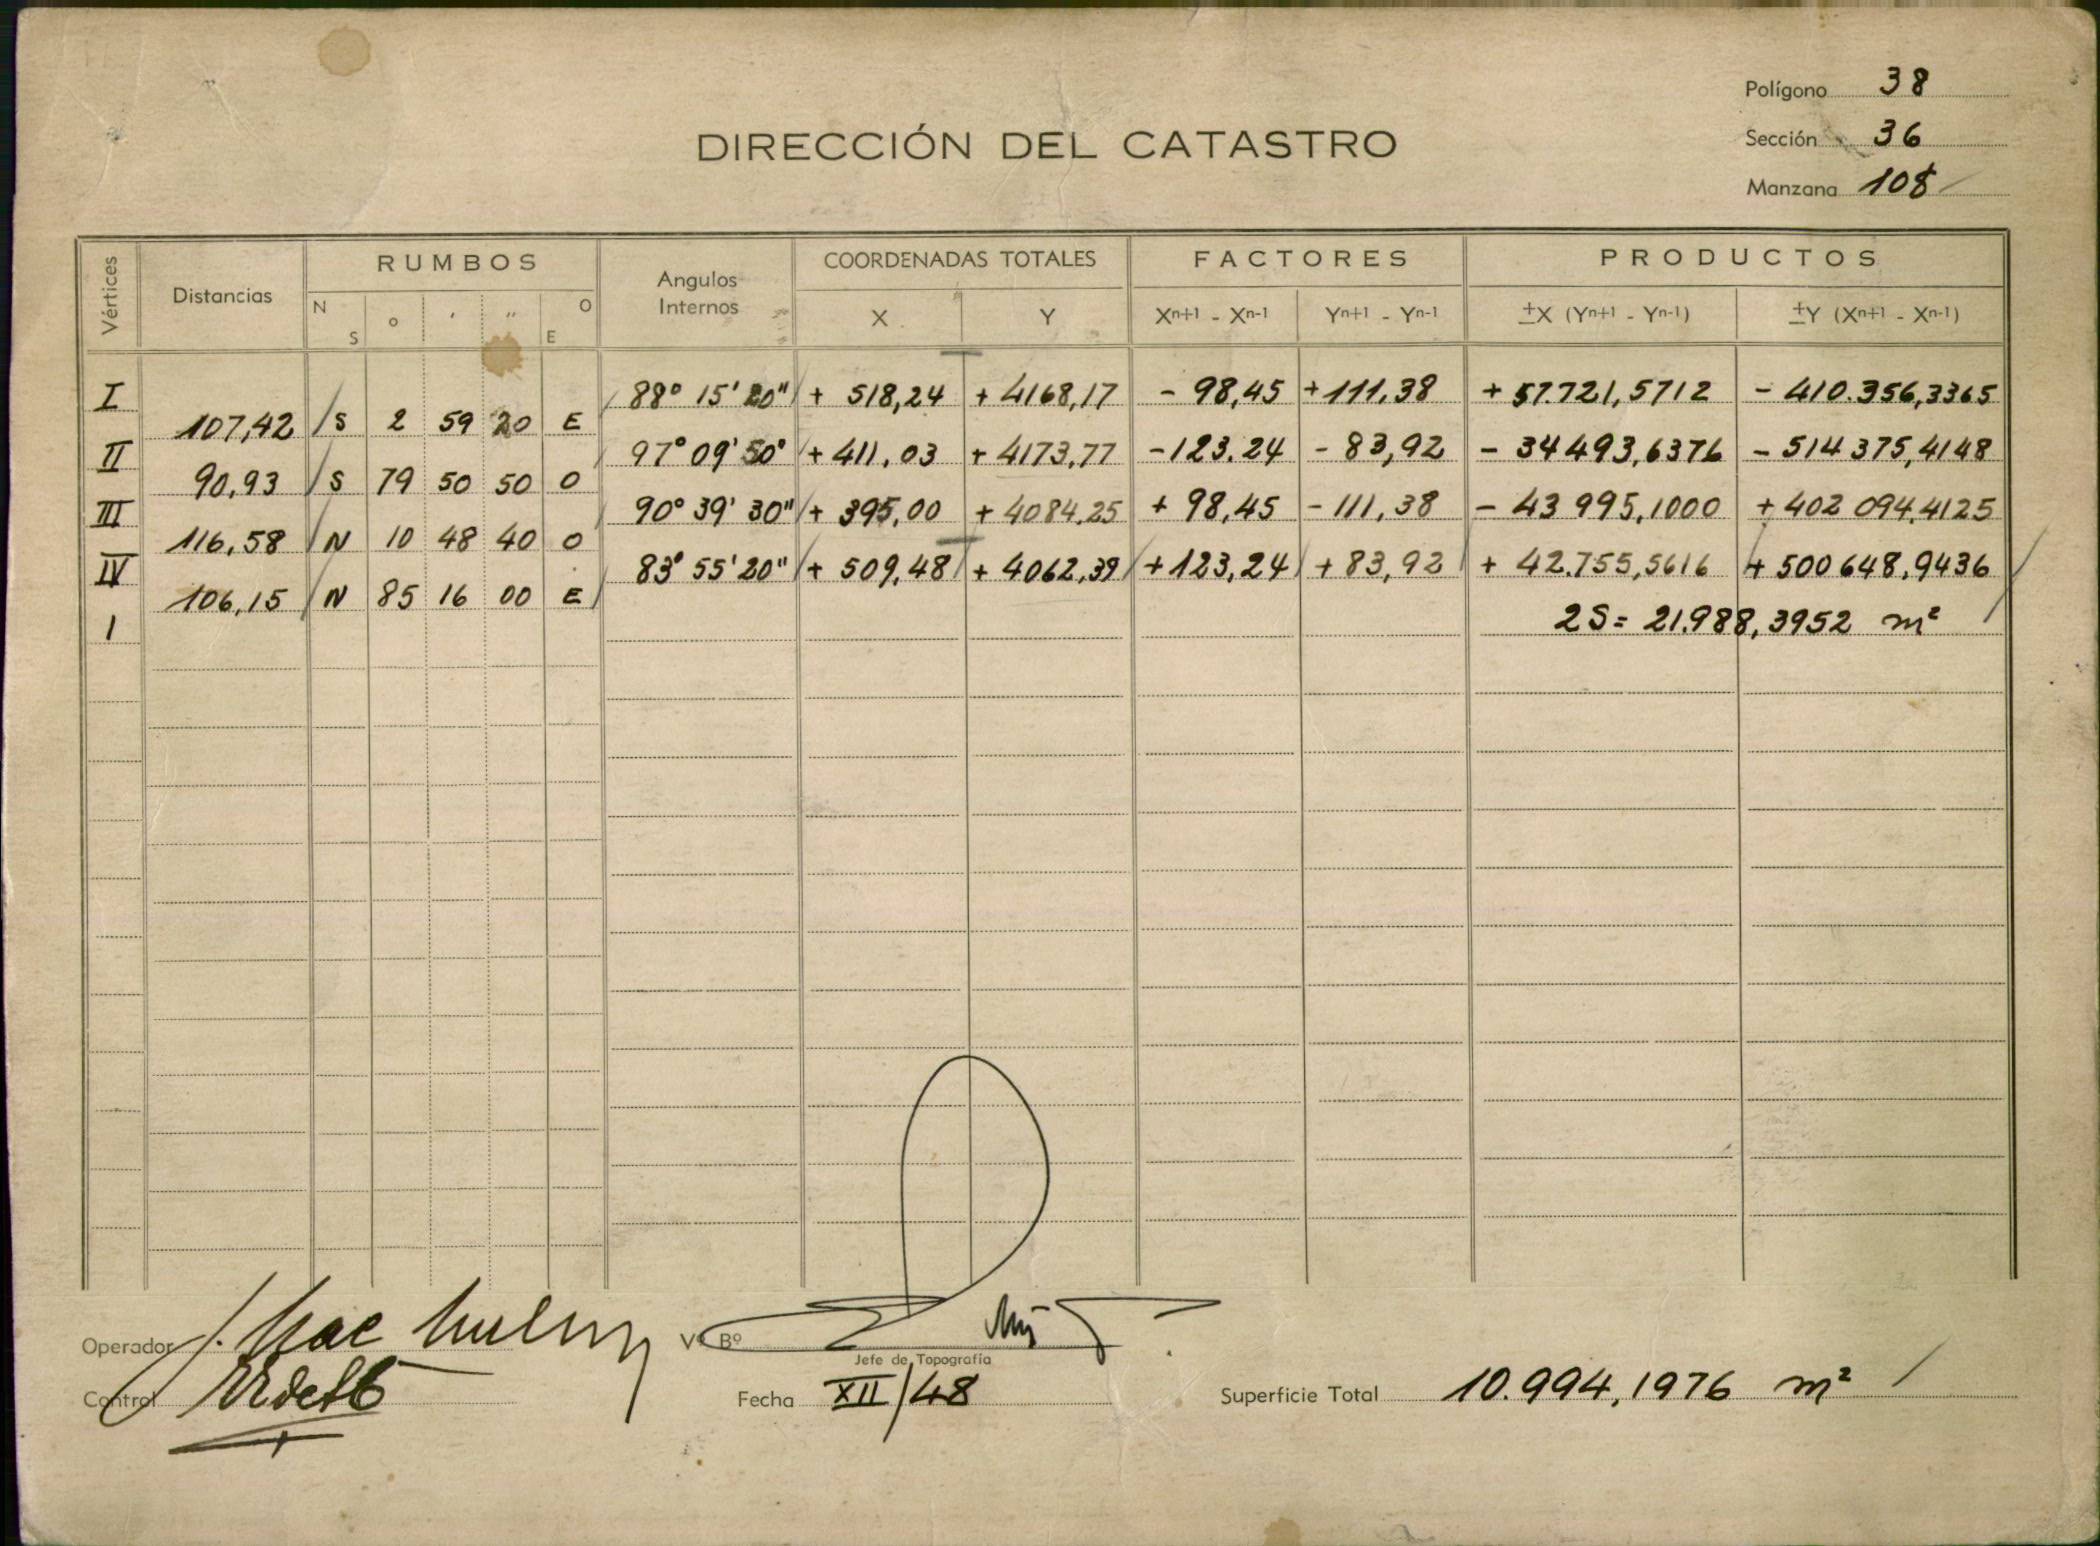 Polígono 38
DIRECCIÓN DEL CATASTRO
Sección 36
Manzana 108
Vértices
Distancias
RUMBOS
N S ° ' " O E
Angulos Internos
COORDENADAS TOTALES
X Y
FACTORES
Xn+1 - Xn-1 Yn+1 - Yn-1
PRODUCTOS
±X (Yn+1 - Yn-1) ±Y (Xn+1 - Xn-1)
I 88° 15' 20" + 518,24 + 4168,17 - 98,45 + 111,38 + 57.721,5712 - 410.356,3365
107,42 S 2 59 20 E
II 97° 09' 50" + 411,03 + 4173,77 - 123.24 - 83,92 - 34 493,6376 - 514 375,4148
90,93 S 79 50 50 O
III 90° 39' 30" + 395,00 + 4084,25 + 98,45 - 111,38 - 43 995,1000 + 402 094,4125
116,58 N 10 48 40 O
IV 83° 55' 20" + 509,48 + 4062,39 + 123,24 + 83,92 + 42.755,5616 + 500 648,9436
106,15 N 85 16 00 E
I 2S = 21.988,3952 m²
Operador
Vº Bº
Jefe de Topografía
Control
Fecha XII/48
Superficie Total 10.994,1976 m²